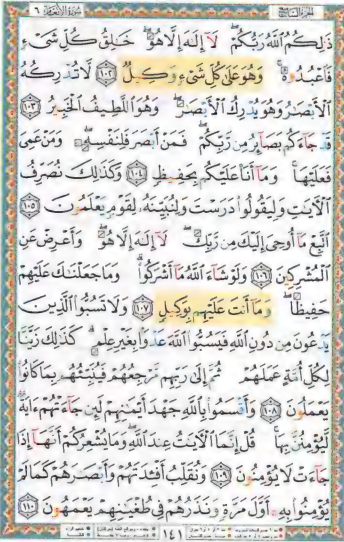 سورة الأنعام ٦
الجزء السابع
ذَٰلِكُمُ ٱللَّهُ رَبُّكُمْ ۖ لَآ إِلَٰهَ إِلَّا هُوَ ۖ خَٰلِقُ كُلِّ شَىْءٍ
فَٱعْبُدُوهُ ۚ وَهُوَ عَلَىٰ كُلِّ شَىْءٍ وَكِيلٌ ١٠٢ لَّا تُدْرِكُهُ
ٱلْأَبْصَٰرُ وَهُوَ يُدْرِكُ ٱلْأَبْصَٰرَ ۖ وَهُوَ ٱللَّطِيفُ ٱلْخَبِيرُ ١٠٣
قَدْ جَآءَكُم بَصَآئِرُ مِن رَّبِّكُمْ ۖ فَمَنْ أَبْصَرَ فَلِنَفْسِهِۦ ۖ وَمَنْ عَمِىَ
فَعَلَيْهَا ۚ وَمَآ أَنَا۠ عَلَيْكُم بِحَفِيظٍ ١٠٤ وَكَذَٰلِكَ نُصَرِّفُ
ٱلْءَايَٰتِ وَلِيَقُولُوا۟ دَرَسْتَ وَلِنُبَيِّنَهُۥ لِقَوْمٍ يَعْلَمُونَ ١٠٥
ٱتَّبِعْ مَآ أُوحِىَ إِلَيْكَ مِن رَّبِّكَ ۖ لَآ إِلَٰهَ إِلَّا هُوَ ۖ وَأَعْرِضْ عَنِ
ٱلْمُشْرِكِينَ ١٠٦ وَلَوْ شَآءَ ٱللَّهُ مَآ أَشْرَكُوا۟ ۗ وَمَا جَعَلْنَٰكَ عَلَيْهِمْ
حَفِيظًا ۖ وَمَآ أَنتَ عَلَيْهِم بِوَكِيلٍ ١٠٧ وَلَا تَسُبُّوا۟ ٱلَّذِينَ
يَدْعُونَ مِن دُونِ ٱللَّهِ فَيَسُبُّوا۟ ٱللَّهَ عَدْوًۢا بِغَيْرِ عِلْمٍ ۗ كَذَٰلِكَ زَيَّنَّا
لِكُلِّ أُمَّةٍ عَمَلَهُمْ ثُمَّ إِلَىٰ رَبِّهِم مَّرْجِعُهُمْ فَيُنَبِّئُهُم بِمَا كَانُوا۟
يَعْمَلُونَ ١٠٨ وَأَقْسَمُوا۟ بِٱللَّهِ جَهْدَ أَيْمَٰنِهِمْ لَئِن جَآءَتْهُمْ ءَايَةٌ
لَّيُؤْمِنُنَّ بِهَا ۚ قُلْ إِنَّمَا ٱلْءَايَٰتُ عِندَ ٱللَّهِ ۖ وَمَا يُشْعِرُكُمْ أَنَّهَآ إِذَا
جَآءَتْ لَا يُؤْمِنُونَ ١٠٩ وَنُقَلِّبُ أَفْـِٔدَتَهُمْ وَأَبْصَٰرَهُمْ كَمَا لَمْ
يُؤْمِنُوا۟ بِهِۦٓ أَوَّلَ مَرَّةٍ وَنَذَرُهُمْ فِى طُغْيَٰنِهِمْ يَعْمَهُونَ ١١٠
١٤١